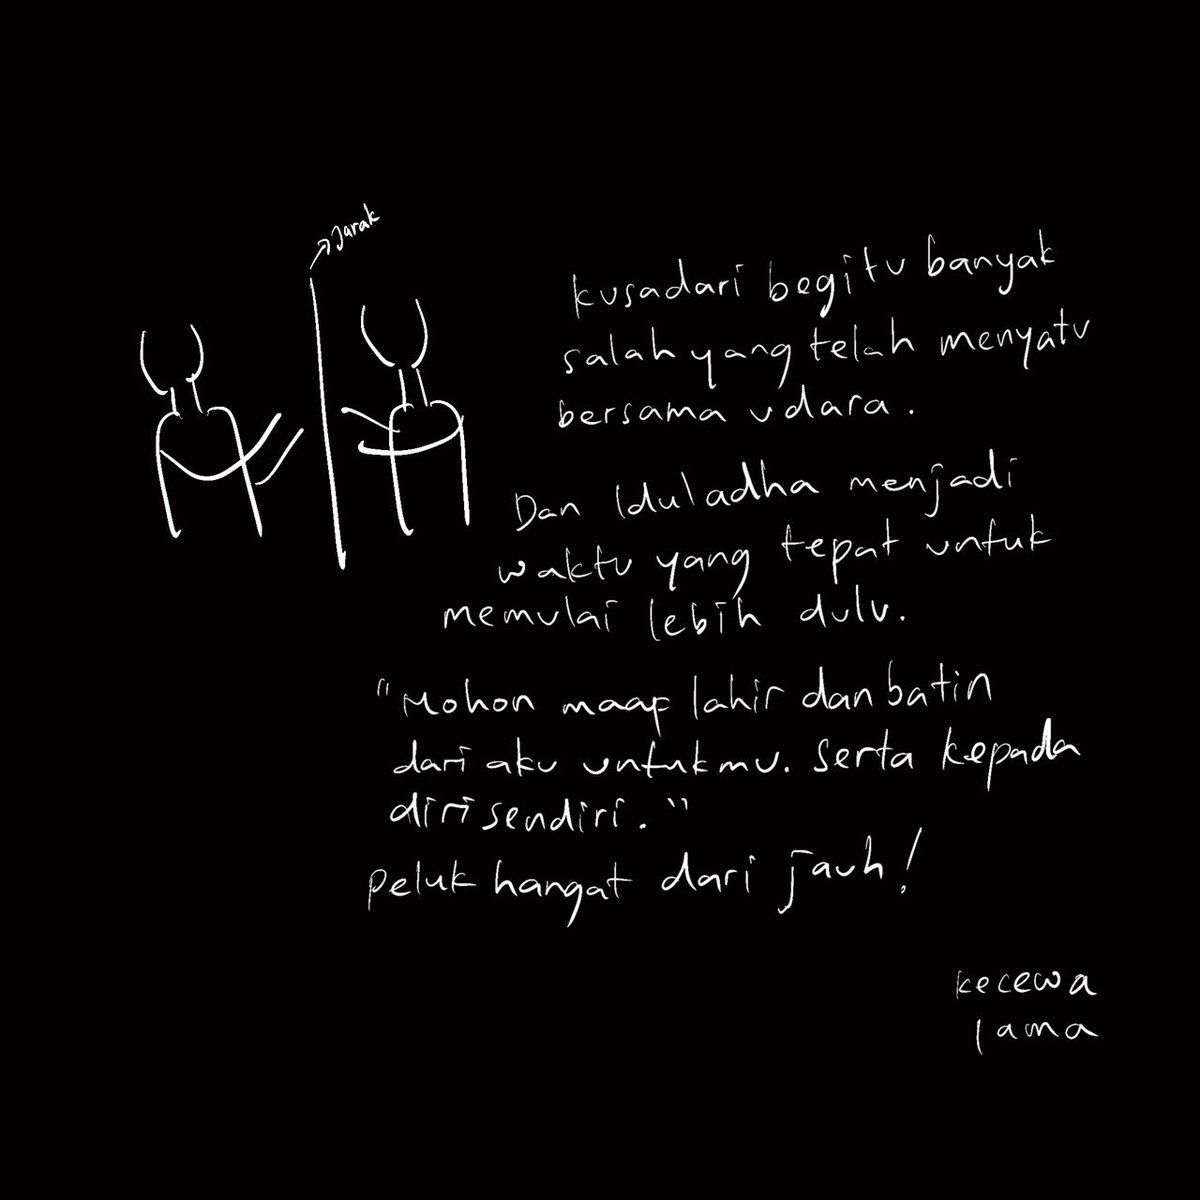 Jarak
kusadari begitu banyak
salah yang telah menyatu
bersama udara.
Dan Iduladha menjadi
waktu yang tepat untuk
memulai lebih dulu.
"Mohon maaf lahir dan batin
dari aku untukmu. serta kepada
diri sendiri."
peluk hangat dari jauh!
kecewa
lama